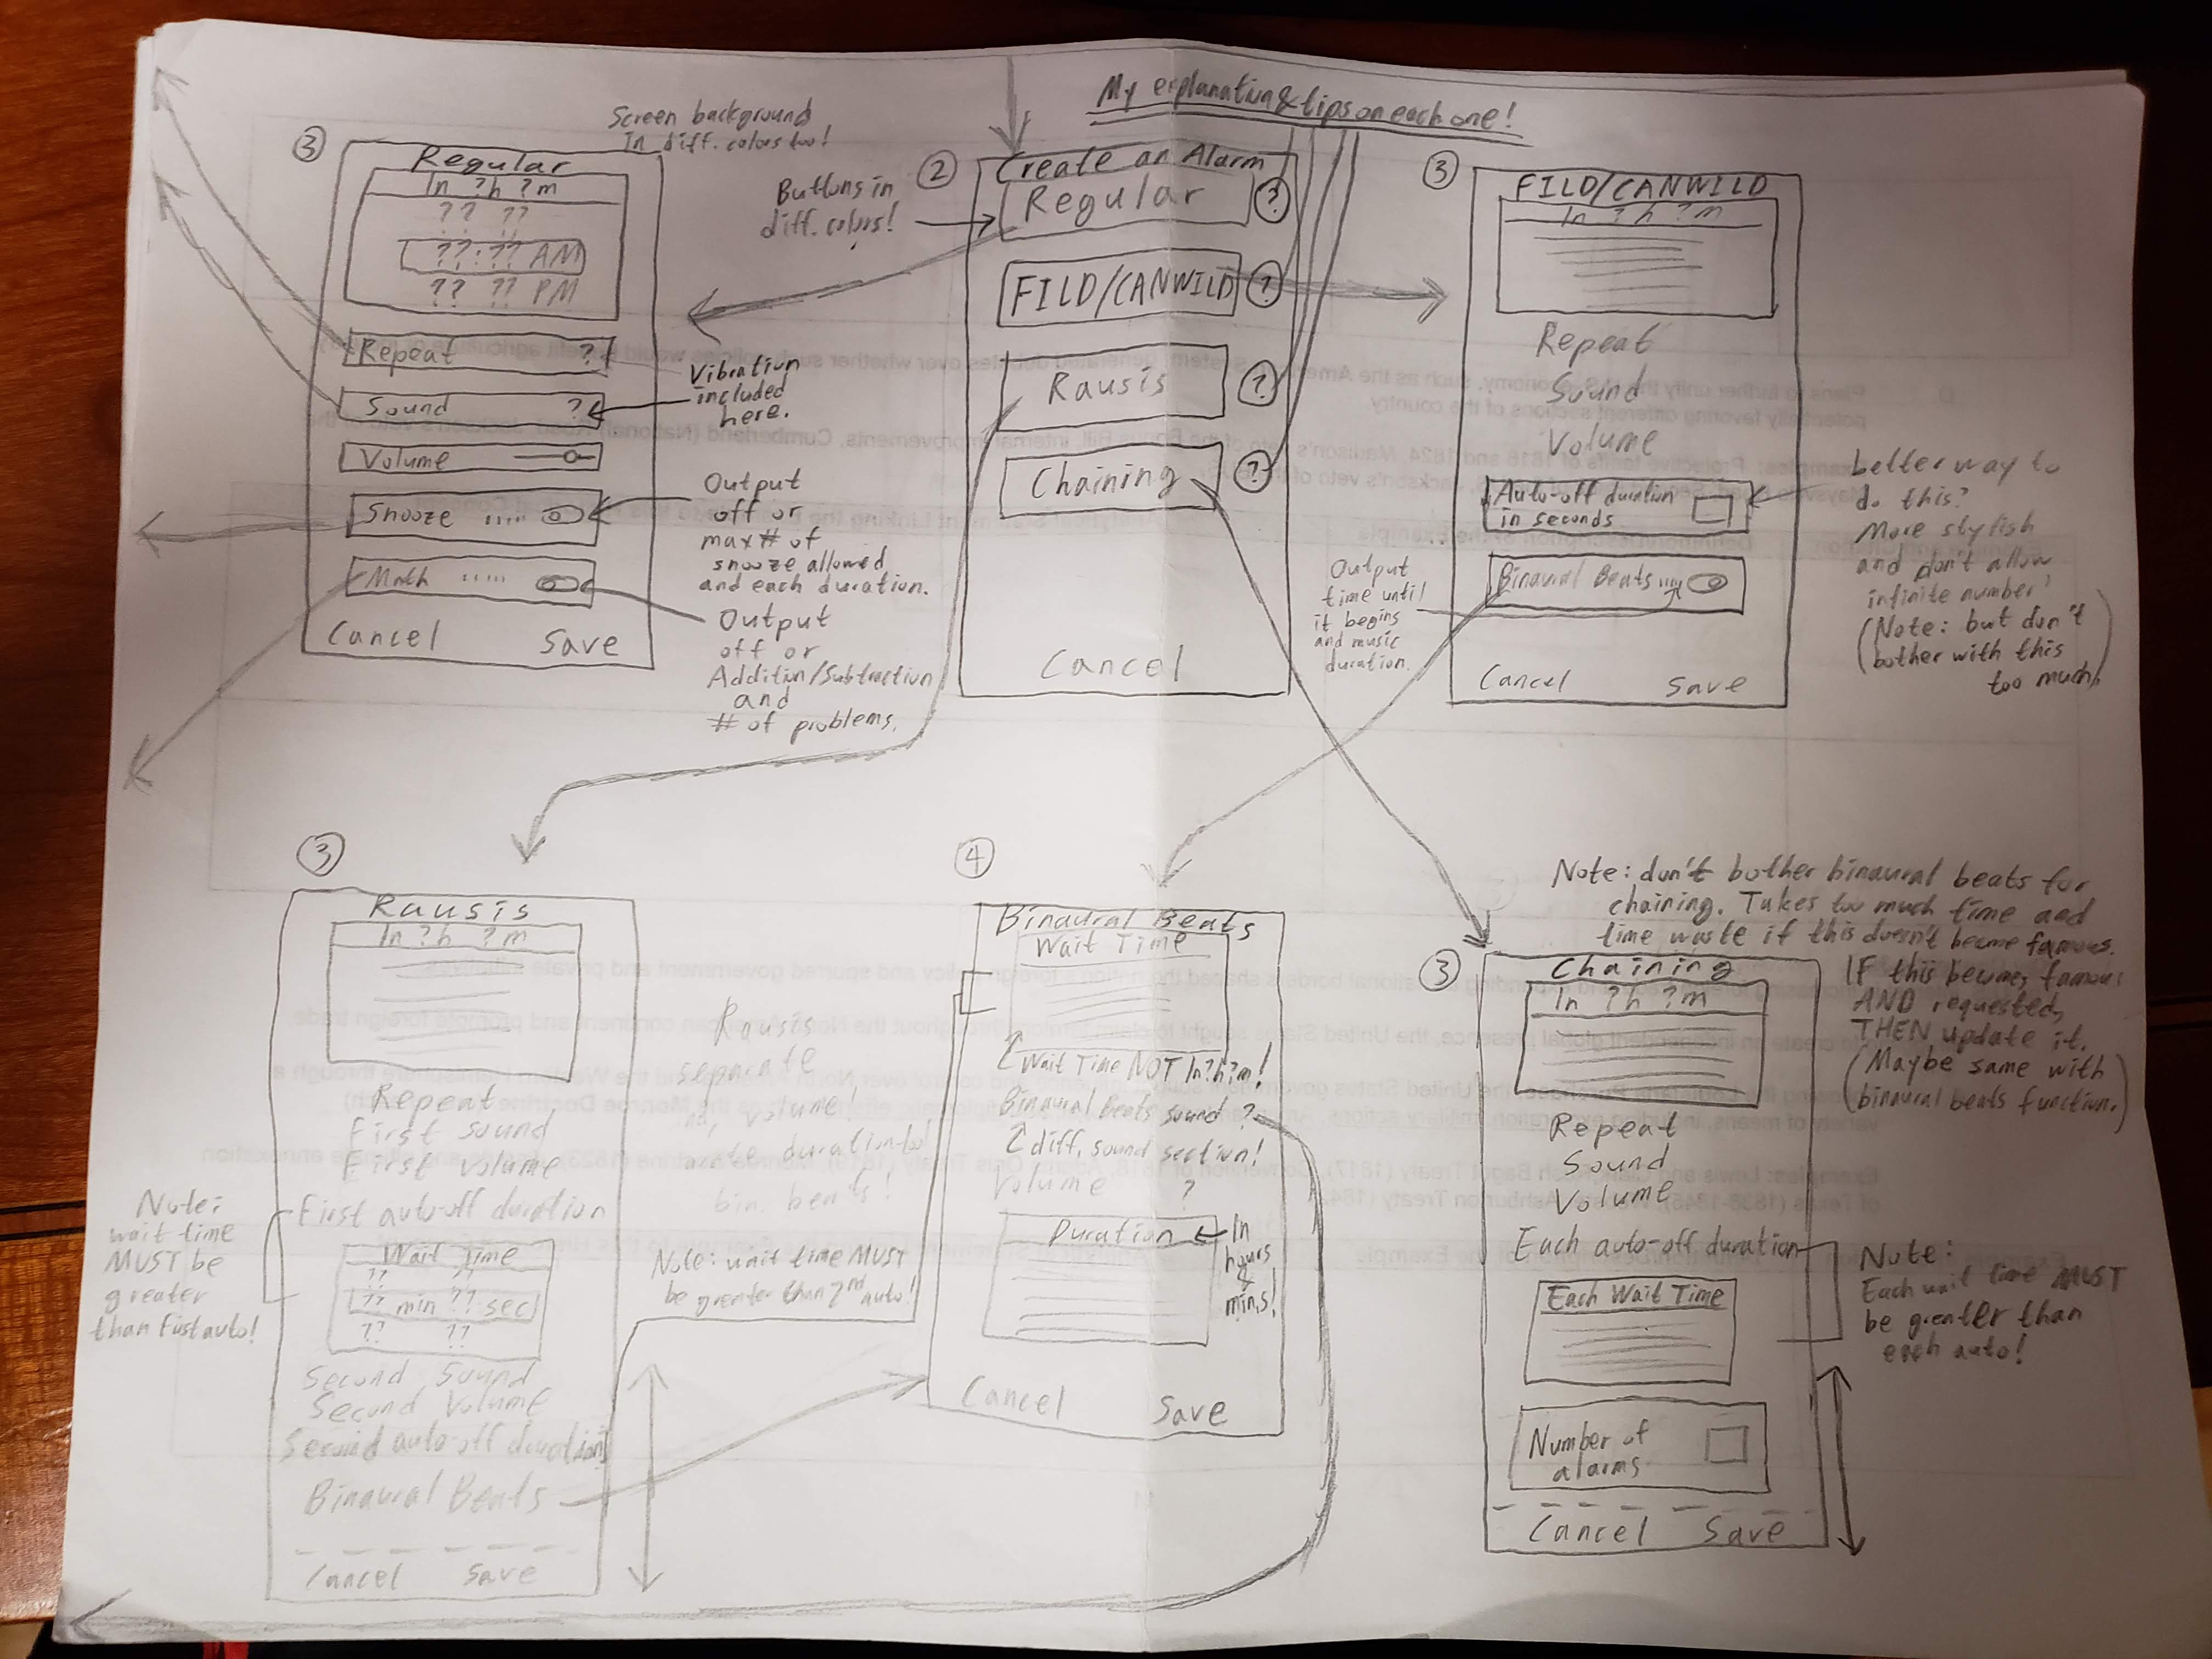 My explanation & tips on each one!
Screen background
In diff. colors too!
3
Regular
In ?h ?m
?? ??
??:?? AM
?? ?? PM
Repeat ?
Sound ?
Volume
Snooze
Math
Cancel Save
Buttons in
diff. colors!
Vibration
included
here.
Output
off or
max # of
snooze allowed
and each duration.
Output
off or
Addition/Subtraction
and
# of problems.
2
Create an Alarm
Regular ?
FILD/CANWILD ?
Rausis ?
Chaining ?
Cancel
3
FILD/CANWILD
In ?h ?m
Repeat
Sound
Volume
Auto-off duration
in seconds
Binaural Beats
Cancel Save
Output
time until
it begins
and music
duration.
Better way to
do this?
More stylish
and don't allow
infinite number!
(Note: but don't
bother with this
too much)
3
Rausis
In ?h ?m
Repeat
First sound
First volume
First auto-off duration
Wait Time
?? ??
?? min ?? sec
?? ??
Second Sound
Second Volume
Second auto-off duration
Binaural Beats
Cancel Save
Note:
wait time
MUST be
greater
than first auto!
Rausis
separate
volume!
duration too!
bin. beats!
Note: wait time MUST
be greater than 2nd auto!
4
Binaural Beats
Wait Time
Wait Time NOT In?h?m!
Binaural Beats sound ?
diff. sound section!
Volume ?
Duration
In
hours
&
mins!
Cancel Save
Note: don't bother binaural beats for
chaining. Takes too much time and
time waste if this doesn't became famous.
IF this becomes famous
AND requested,
THEN update it.
(Maybe same with
binaural beats function.)
3
Chaining
In ?h ?m
Repeat
Sound
Volume
Each auto-off duration
Each Wait Time
Number of
alarms
Cancel Save
Note:
Each wait time MUST
be greater than
each auto!